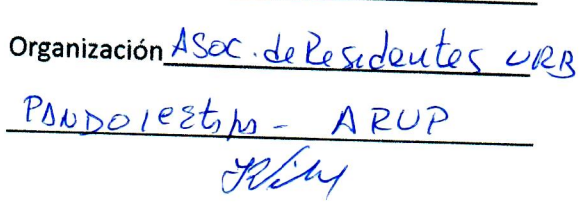 Organización ASOC. de Residentes URB
PANDO 1eEtapa - ARUP